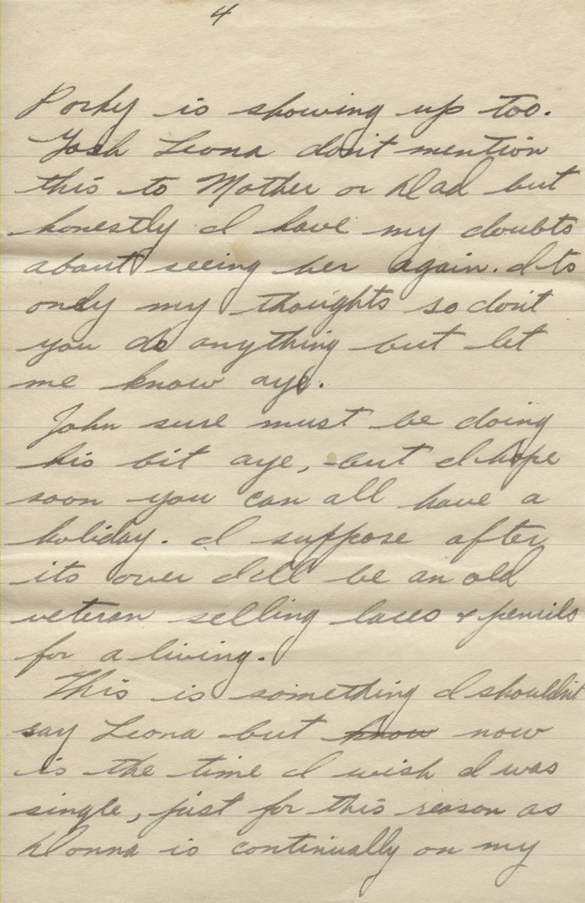 4
Porky is showing up too.
Gosh Leona don't mention
this to Mother or Dad but
honestly I have my doubts
about seeing her again. Its
only my thoughts so don't
you do anything but let
me know aye.
John sure must be doing
his bit aye, but I hope
soon you can all have a
holiday. I suppose after
its over I'll be an old
veteran selling laces & pencils
for a living.
This is something I shouldn't
say Leona but know now
is the time I wish I was
single, just for this reason as
Donna is continually on my